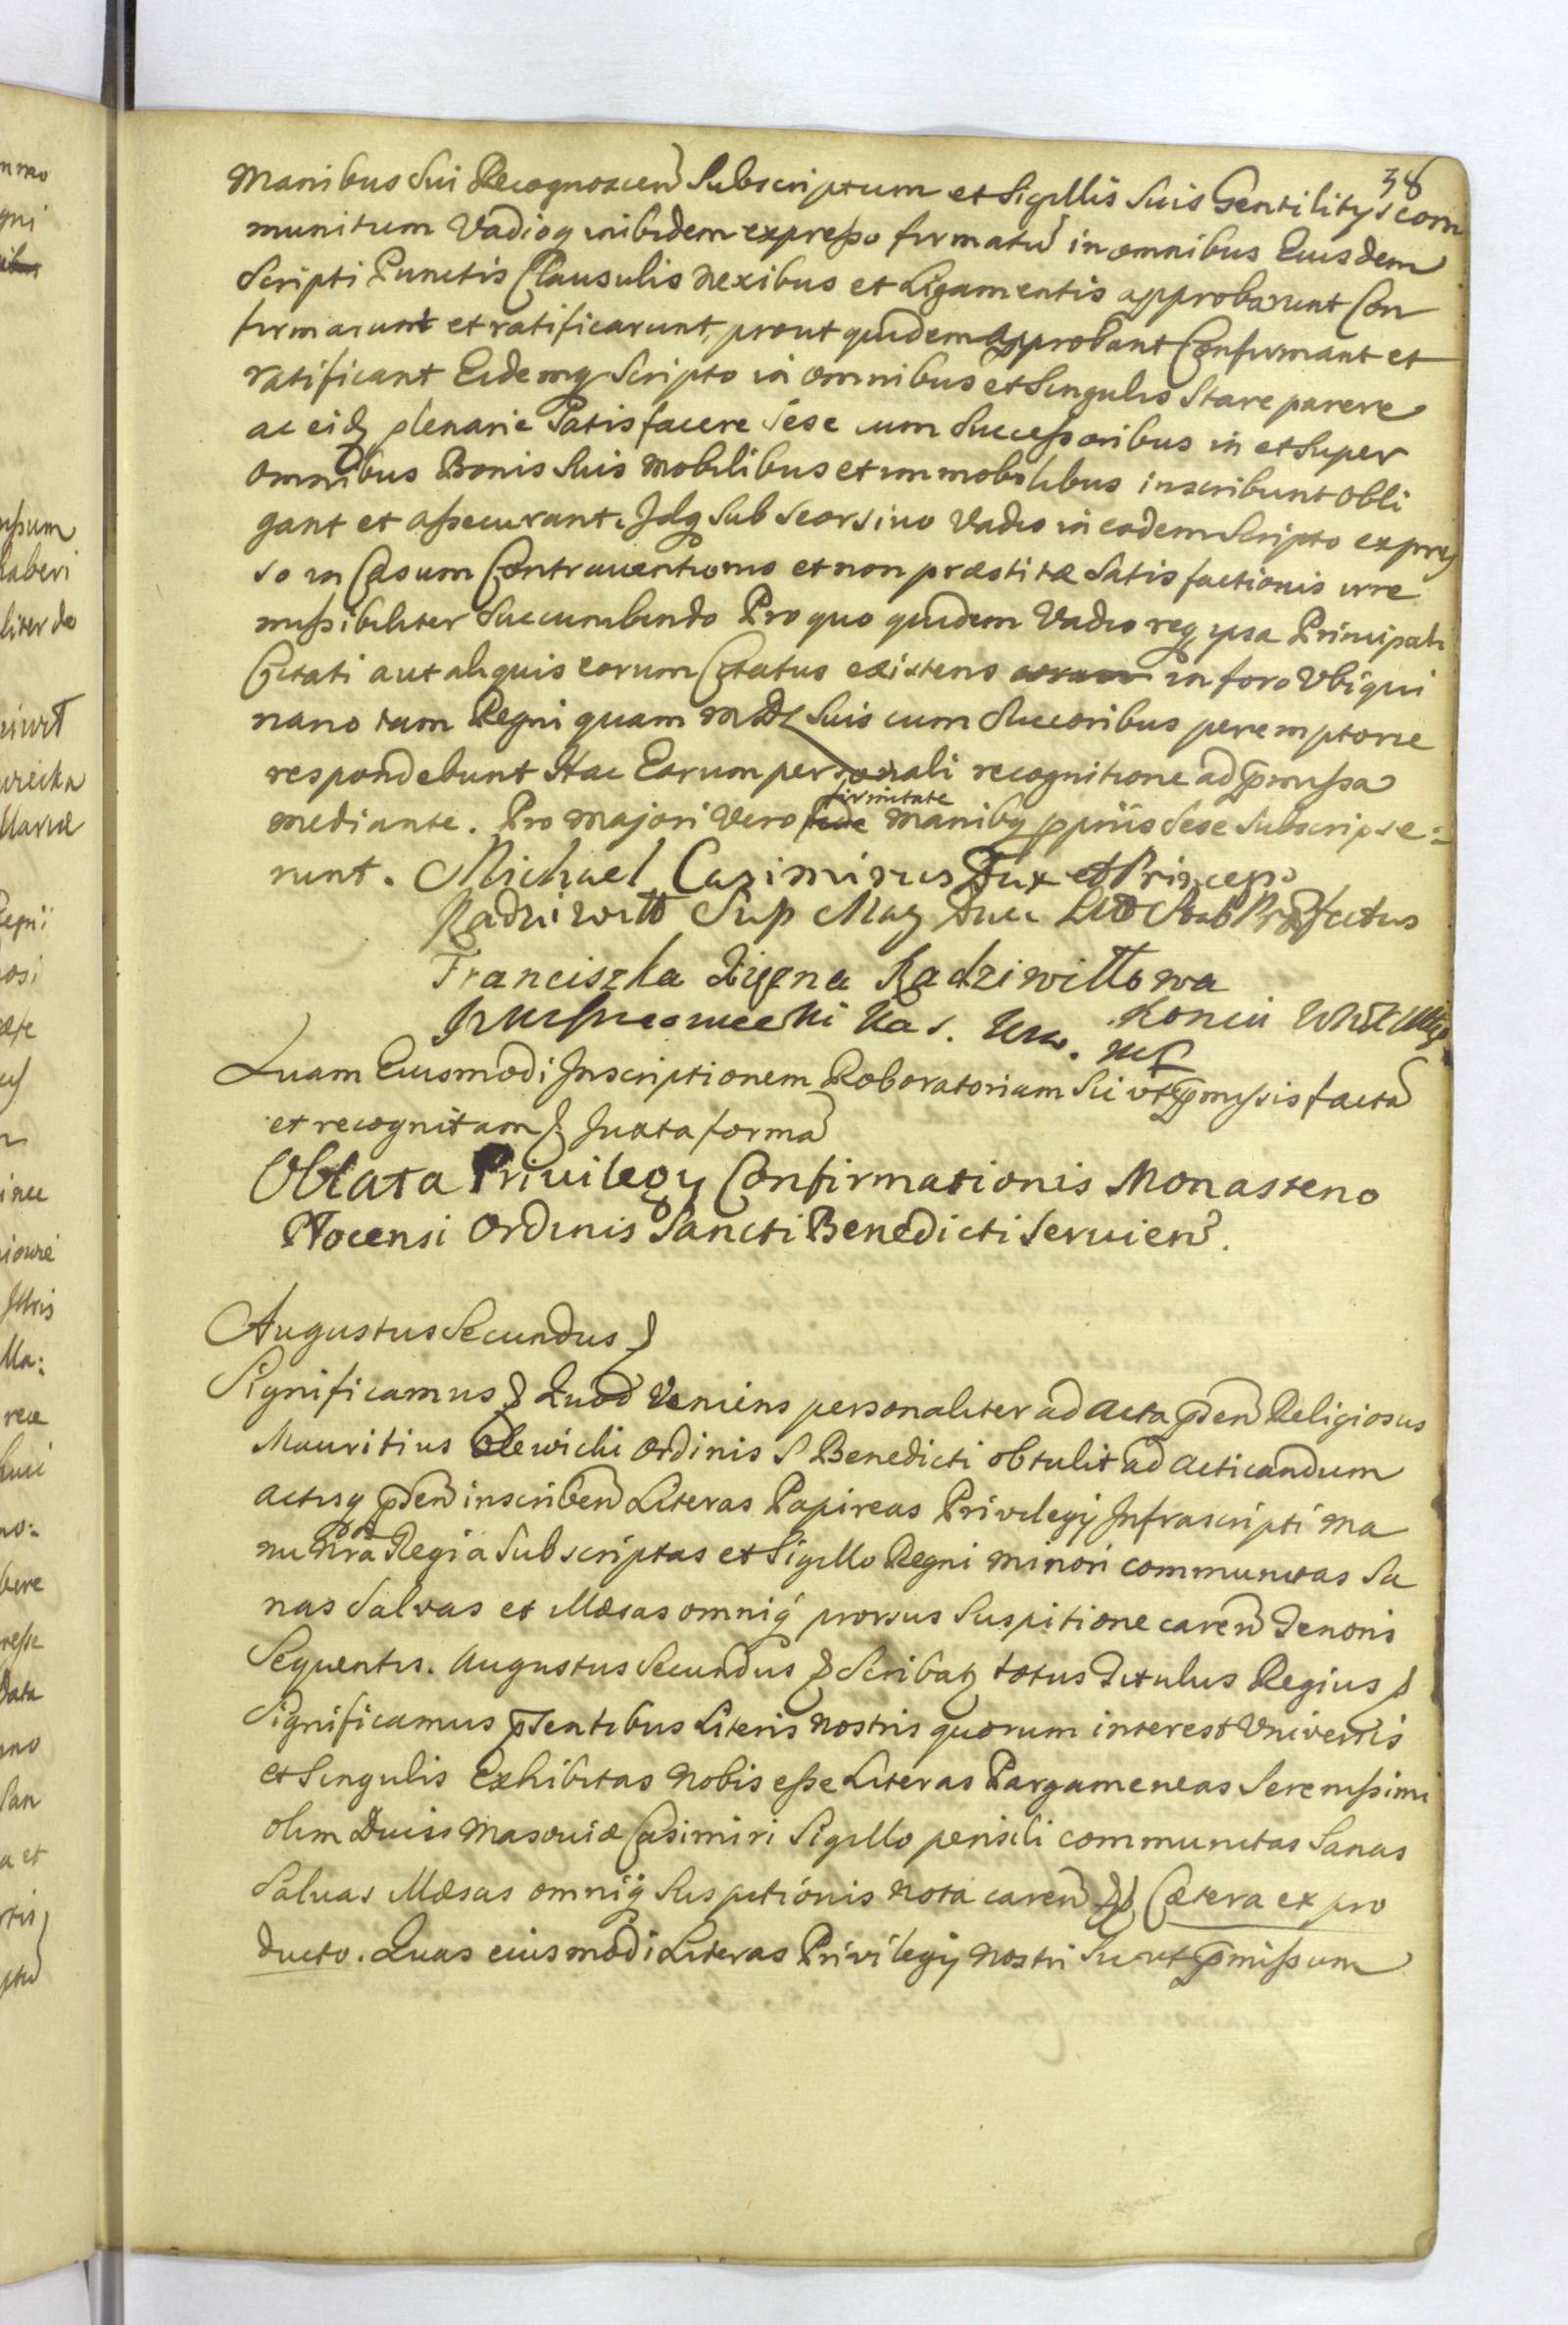 38
Manibus Sui Recognoscen Subscriptum et Sigillis Suis Gentilitys com
munitum Vadioq inibidem expresso firmatu in omnibus Eiusdem
Scripti Punctis Clausulis Nexibus et Ligamentis approbarunt Con
firmarunt et ratificarunt, prout quidem approbant Confirmant et
ratificant Eidemq Scripto in omnibus et Singulis Stare parere
ac eidq plenarie Satisfacere Sese cum Successoribus in et Super
omnibus Bonis Suis Mobilibus et immobilibus inscribunt obli
gant et assecurant. Idq Sub Seorsivo Vadio in eodem Scripto expres
so in Casum Contraventionis et non præstitæ Satisfactionis irre
missibiliter Succumbendo Pro quo quidem Vadio req ipsa Principali
Citati aut aliquis eorum Citatus existens in foro Vbiqui
nario tam Regni quam MDL Suis cum Succoribus peremptorie
respondebunt Hac Earum personali recognitione ad pmissa
mediante. Pro majori Vero firmitate Manibq ppriis Sese Subscripse:
runt. Michael Casimirus Dux et Princeps
Radziwiłł Sup Mag Duc Litt Stab Præfectus
Franciszka Radziwiłłowa
Koniu
Quam Eiusmodi Inscriptionem Roboratoriam Sic vt pmissis facta
et recognitam Juxta forma
Oblata Privilegy Confirmationis Monasterio
Płocensi Ordinis Sancti Benedicti Seruien.
Augustus Secundus
Significamus Quod Veniens personaliter ad Acta psen Religiosus
Mauritius Olewicki Ordinis S Benedicti obtulit ad Acticandum
actisq psen inscriben Literas Papireas Privilegij Infrascripti Ma
nu Nra Regia Subscriptas et Sigillo Regni minori communitas Sa
nas Salvas et Illæsas omniq prorsus Suspitione caren Tenoris
Sequentis. Augustus Secundus Scribatq totus Titulus Regius
Significamus psentibus Literis Nostris quorum interest Vniversis
et Singulis Exhibitas Nobis esse Literas Pargameneas Serenissimi
olim Ducis Masoviæ Casimiri Sigillo pensili communitas Sanas
Saluas Illæsas omniq Suspitionis Nota caren Cætera ex pro
ducto. Quas eiusmodi Literas Privilegij Nostri Sic vt pmissum